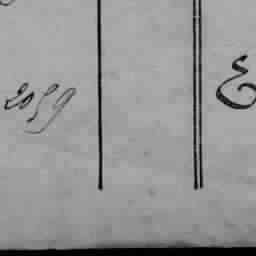 2059 E